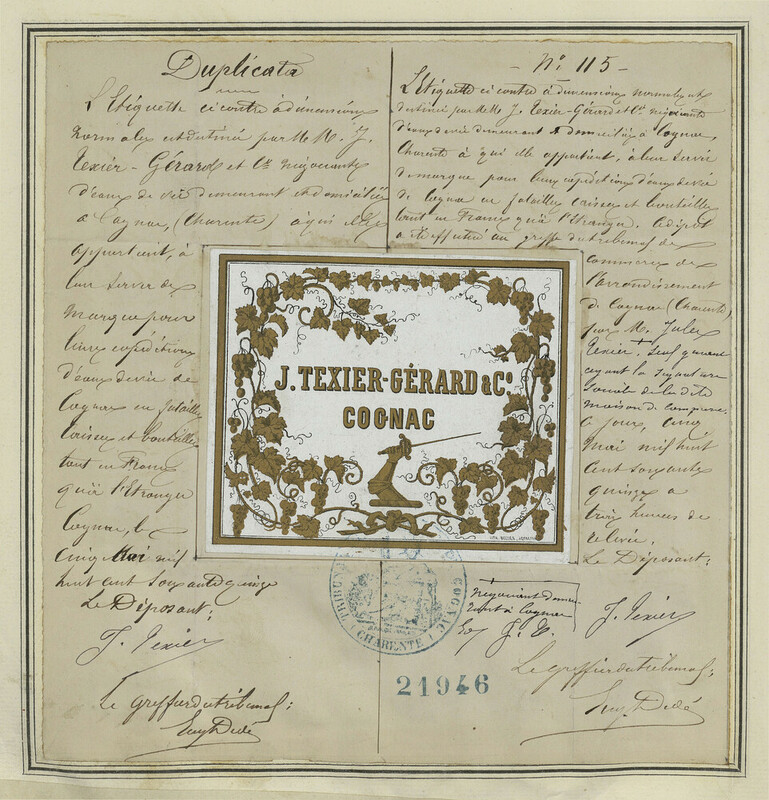 Duplicata
L'Etiquette ci contre à dimensions
normales est destiné par M.M. J.
Texier-Gérard et Cie négociants
d'eaux de vie demeurant et domiciliés
à Cognac, (Charente) à qui elle
appartient, à
leur servir de
marque pour
leurs expéditions
d'eaux de vie de
Cognac en futailles
caisses et bouteilles
tant en France
qu'à l'Etranger
Cognac, le
cinq Mai mil
huit cent soixante quinze
Le Déposant;
J. Texier
Le Greffier du tribunal;
Eug. Dedé
- No. 115 -
L'étiquette ci contre à dimensions normales est
destinée par M.M. J. Texier-Gérard et Cie négociants
d'eaux de vie demeurant & domiciliés à Cognac,
Charente à qui elle appartient, à leur servir
de marque pour leurs expéditions d'eaux de vie
de Cognac en futailles caisses et bouteilles
tant en France qu'à l'Etranger. Le dépôt
a été effectué au greffe du tribunal de
commerce de
l'arrondissement
de Cognac (Charente)
par M. Jules
Texier, seul gérant
ayant la signature
sociale de la dite
maison de commerce.
ce jour, cinq
Mai mil huit
cent soixante
quinze à
trois heures de
relevée.
Le Déposant;
négociant demeu-
rant à Cognac
J. T.
J. Texier
Le greffier du tribunal;
Eug. Dedé
J. TEXIER-GÉRARD & Co
COGNAC
TRIBUNAL COGNAC
CHARENTE
21946